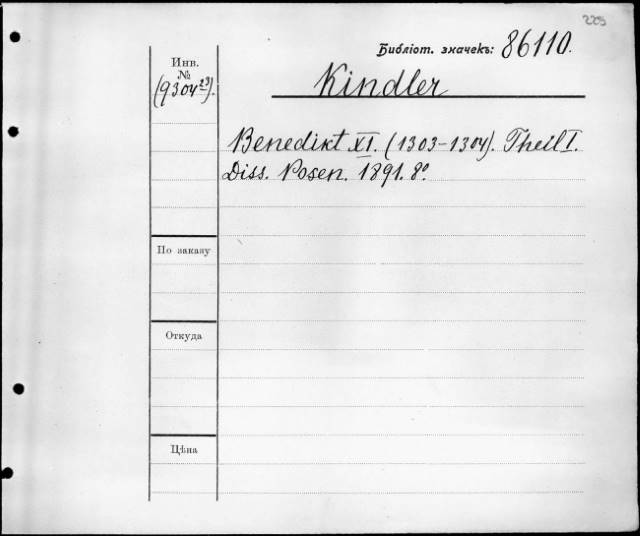 229
Библіот. значекъ: 86110.
Инв.
№
(9304²³).
Kindler
Benedikt XI. (1303-1304). Theil I.
Diss. Posen. 1891. 8º.
По заказу
Откуда
Цѣна